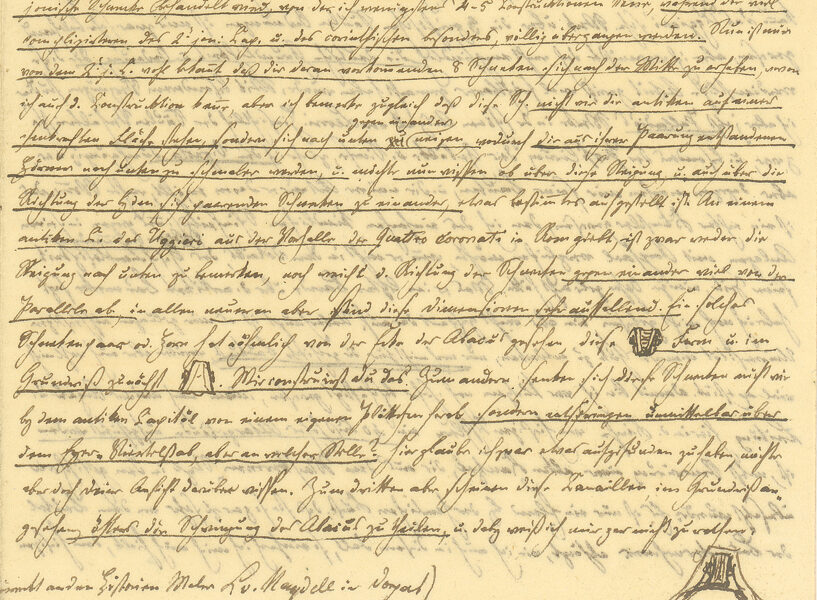 jonische Schnecke behandelt wird, von der ich wenigstens 4-5 Constructionen kenne, während der viel
complizirteren des 2t. jon: Cap. u. des corinthischen besonders, völlig übergangen werden. Nun ist mir
von dem 2t. j. C. wohl bekannt, daß die daran vorkommenden 8 Schnecken sich nach der Mitte zu erheben, wovon
ich auch d. Construktion kenne, aber ich bemerke zugleich daß diese Sch. nicht wie die antiken auf einer
senkrechten Fläche stehen, sondern sich nach unten gegen einander neigen, wodurch die aus ihrer Paarung entstandenen
Hörner nach unten zu schmaler werden, u. möchte nun wissen ob über diese Neigung u. auch über die
Richtung der beiden sich paarenden Schnecken zu einander, etwas bestimmtes aufgestellt ist. An einem
antiken C. das Uggieri aus der Vorhalle der Quattro coronati in Rom giebt, ist zwar weder die
Neigung nach unten zu bemerken, noch weicht d. Richtung der Schnecken gegen einander viel von der
Parallele ab, in allen neueren aber sind diese Dimensionen sehr auffallend. Ein solches
Schneckenpaar od. Horn hat nähmlich von der Ecke der Abacus gesehen diese Form u. im
Grundriß zunächst . Wie construirst du das. Zum andern senken sich diese Schnecken nicht wie
by dem antiken Capitäl von einem eigenen Plättchen herab, sondern entspringen unmittelbar über
dem Eyer= Viertelstab, aber an welcher Stelle? hier glaube ich zwar etwas aufgefunden zu haben, möchte
aber doch deine Ansicht darüber wissen. Zum dritten aber scheinen diese Canaillen, im Grundriß an
gesehen öfters die Schwingung des Abacus zu theilen, u. dabey weiß ich mir gar nicht zu rathen.
an den Historien Maler L. v. Maydell in Dorpat)